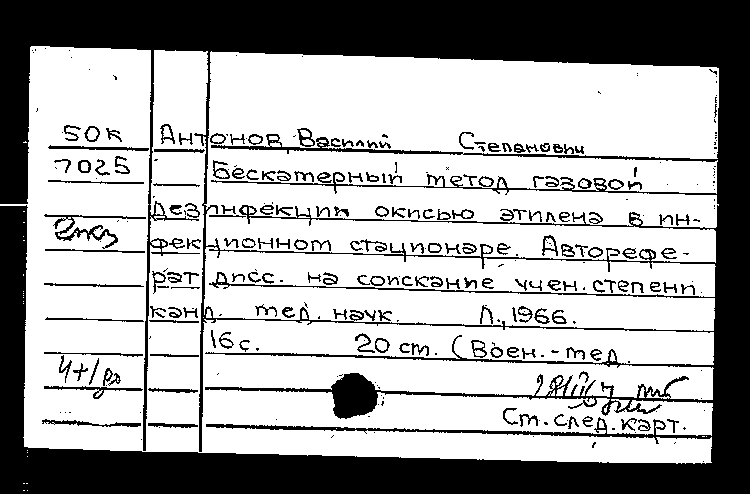 50к Антонов, Василий Степанович
7025 Бескамерный метод газовой
дезинфекции окисью этилена в ин-
2экз фекционном стационаре. Авторефе-
рат дисс. на соискание учен. степени
канд. мед. наук. Л., 1966.
16 с. 20 см. (Воен.-мед.
Ст. след. карт.